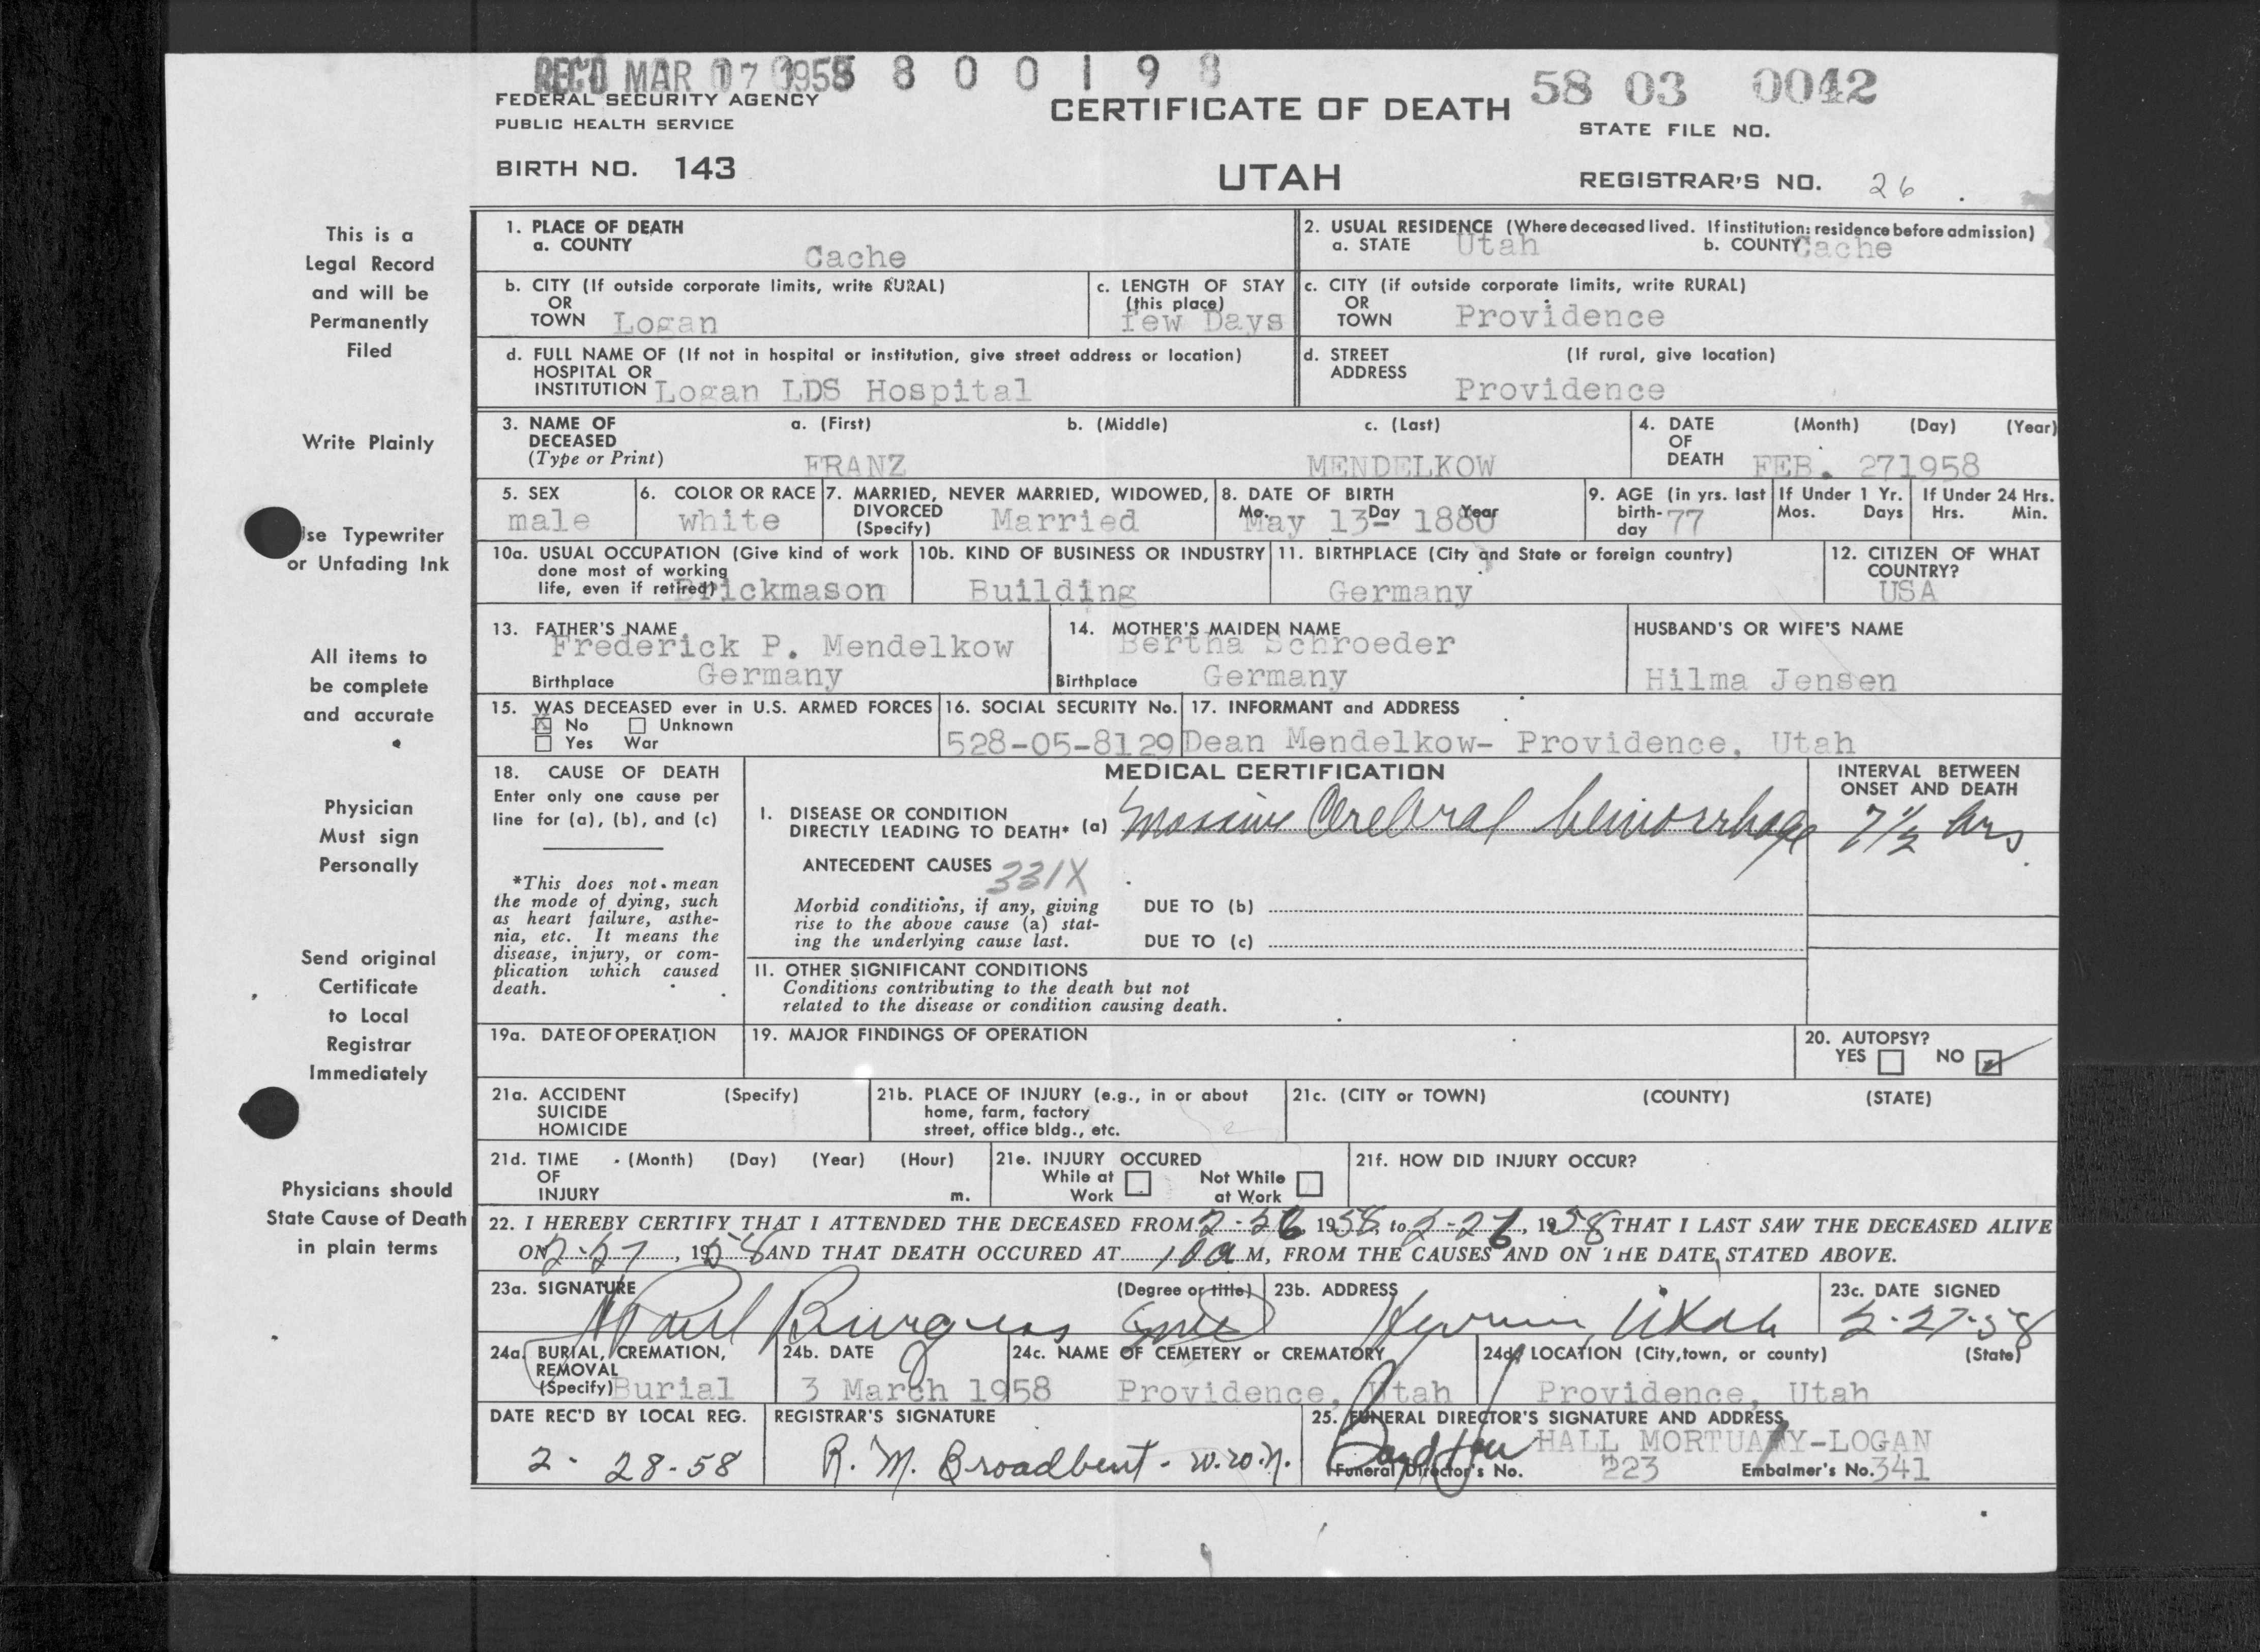 REC'D MAR 17 1958 8 0 0 1 9 8
58 03 0042
FEDERAL SECURITY AGENCY
PUBLIC HEALTH SERVICE
CERTIFICATE OF DEATH
STATE FILE NO.
BIRTH NO. 143
UTAH
REGISTRAR'S NO. 26
This is a
Legal Record
and will be
Permanently
Filed
Write Plainly
Use Typewriter
or Unfading Ink
All items to
be complete
and accurate
Physician
Must sign
Personally
Send original
Certificate
to Local
Registrar
Immediately
Physicians should
State Cause of Death
in plain terms
1. PLACE OF DEATH
a. COUNTY Cache
2. USUAL RESIDENCE (Where deceased lived. If institution: residence before admission)
a. STATE Utah b. COUNTY Cache
b. CITY (If outside corporate limits, write RURAL)
OR
TOWN Logan
c. LENGTH OF STAY
(this place)
few Days
c. CITY (if outside corporate limits, write RURAL)
OR
TOWN Providence
d. FULL NAME OF (If not in hospital or institution, give street address or location)
HOSPITAL OR
INSTITUTION Logan LDS Hospital
d. STREET (If rural, give location)
ADDRESS Providence
3. NAME OF a. (First) b. (Middle) c. (Last)
DECEASED
(Type or Print) FRANZ MENDELKOW
4. DATE (Month) (Day) (Year)
OF
DEATH FEB. 27 1958
5. SEX
male
6. COLOR OR RACE
white
7. MARRIED, NEVER MARRIED, WIDOWED,
DIVORCED
(Specify) Married
8. DATE OF BIRTH
Mo. Day Year
May 13- 1880
9. AGE (in yrs. last
birth-
day 77
If Under 1 Yr.
Mos. Days
If Under 24 Hrs.
Hrs. Min.
10a. USUAL OCCUPATION (Give kind of work
done most of working
life, even if retired) Brickmason
10b. KIND OF BUSINESS OR INDUSTRY
Building
11. BIRTHPLACE (City and State or foreign country)
Germany
12. CITIZEN OF WHAT
COUNTRY?
USA
13. FATHER'S NAME
Frederick P. Mendelkow
Birthplace Germany
14. MOTHER'S MAIDEN NAME
Bertha Schroeder
Birthplace Germany
HUSBAND'S OR WIFE'S NAME
Hilma Jensen
15. WAS DECEASED ever in U.S. ARMED FORCES
No Unknown
Yes War
16. SOCIAL SECURITY No.
528-05-8129
17. INFORMANT and ADDRESS
Dean Mendelkow- Providence, Utah
18. CAUSE OF DEATH
Enter only one cause per
line for (a), (b), and (c)
*This does not mean
the mode of dying, such
as heart failure, asthe-
nia, etc. It means the
disease, injury, or com-
plication which caused
death.
MEDICAL CERTIFICATION
INTERVAL BETWEEN
ONSET AND DEATH
I. DISEASE OR CONDITION
DIRECTLY LEADING TO DEATH* (a) Massive Cerebral hemorrhage 7½ hrs
ANTECEDENT CAUSES 331X
Morbid conditions, if any, giving
rise to the above cause (a) stat-
ing the underlying cause last.
DUE TO (b)
DUE TO (c)
II. OTHER SIGNIFICANT CONDITIONS
Conditions contributing to the death but not
related to the disease or condition causing death.
19a. DATE OF OPERATION
19. MAJOR FINDINGS OF OPERATION
20. AUTOPSY?
YES NO
21a. ACCIDENT (Specify)
SUICIDE
HOMICIDE
21b. PLACE OF INJURY (e.g., in or about
home, farm, factory
street, office bldg., etc.
21c. (CITY or TOWN) (COUNTY) (STATE)
21d. TIME (Month) (Day) (Year) (Hour)
OF
INJURY m.
21e. INJURY OCCURED
While at
Work
Not While
at Work
21f. HOW DID INJURY OCCUR?
22. I HEREBY CERTIFY THAT I ATTENDED THE DECEASED FROM 2-26, 1958, to 2-27, 1958 THAT I LAST SAW THE DECEASED ALIVE
ON 2-27, 1958 AND THAT DEATH OCCURED AT 1 0 a M, FROM THE CAUSES AND ON THE DATE STATED ABOVE.
23a. SIGNATURE (Degree or title)
Paul Burgess
23b. ADDRESS
Utah
23c. DATE SIGNED
2-27-58
24a. BURIAL, CREMATION,
REMOVAL
(Specify) Burial
24b. DATE
3 March 1958
24c. NAME OF CEMETERY or CREMATORY
Providence, Utah
24d. LOCATION (City, town, or county) (State)
Providence, Utah
DATE REC'D BY LOCAL REG.
2-28-58
REGISTRAR'S SIGNATURE
R. M. Broadbent - w.w.n.
25. FUNERAL DIRECTOR'S SIGNATURE AND ADDRESS
HALL MORTUARY-LOGAN
Funeral Director's No. 223 Embalmer's No. 341